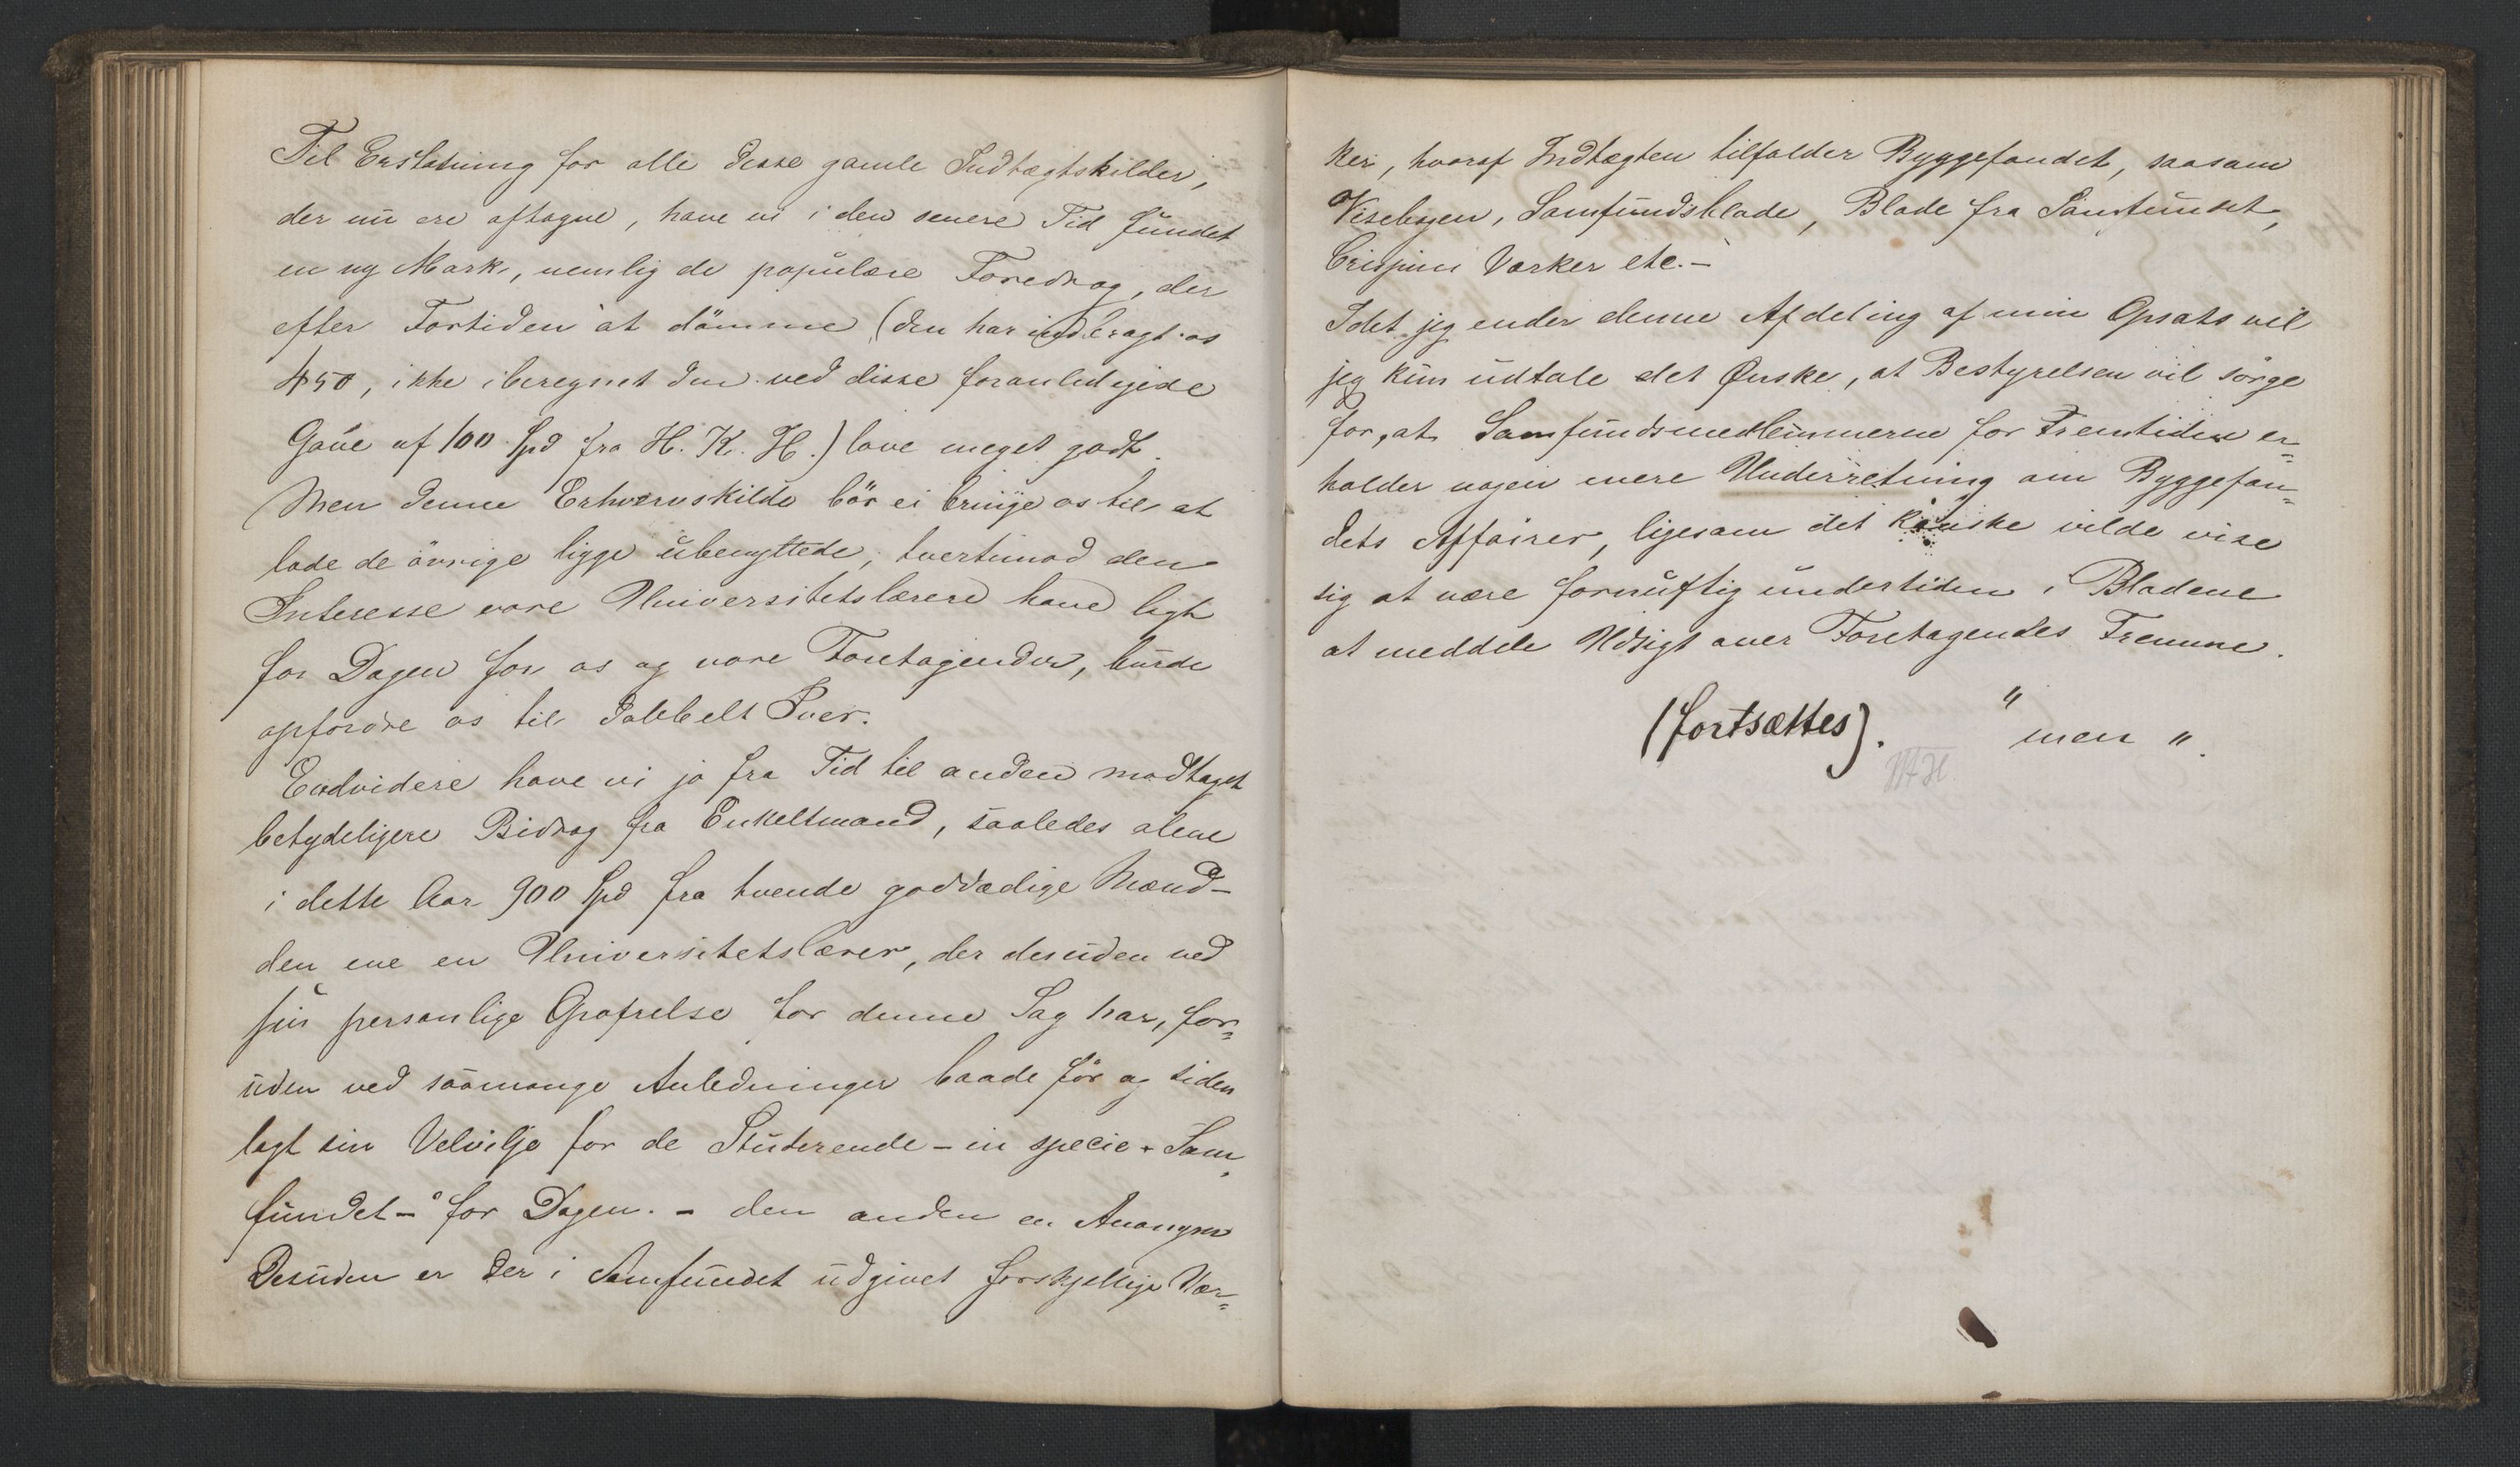 Til Erstatning for alle disse gamle Indtægtskilder,
der nu ere aftagne, have vi i den senere Tid fundet
en ny Mark, nemlig de populære Foredrag, der
efter Fortiden at dömme (den har indbragt os
450, ikke iberegnet den ved disse foranledigede
Gave af 100 Spd fra H. K. H.) love meget godt.
Men denne Erhvervskilde bör ei bringe os til at
lade de övrige ligge ubenyttede; tvertimod den
Interesse vore Universitetslærere have lagt
for Dagen for os og vore Foretagender, burde
opfordre os til dobbelt Iver.
Endvidere have vi jo fra Tid til anden modtaget
betydeligere Bidrag fra Enkeltmand, saaledes alene
i dette Aar 900 Spd fra tvende goddædige Mænd-
den ene en Universitetslærer, der desuden ved
sin personlige Opofrelse for denne Sag har, for=
uden ved saamange Anledninger baade för og siden
lagt sin Velvilje for de Studerende - in specie Sam=
fundet - for Dagen. - den anden en Anonym
Desuden er der i Samfundet udgivet forskjellige Vær=
ker, hvoraf Indtægten tilfalder Byggefondet, saasom
Visebogen, Samfundsblade, Blade fra Samfundet,
Crispini Værker etc. -
Idet jeg ender denne Afdeling af min Opsats vil
jeg kun udtale det Ønske, at Bestyrelsen vil sörge
for, at Samfundsmedlemmerne for Fremtiden er=
holder nogen mere Underretning om Byggefon=
dets Affairer, ligesom det kanske vilde vise
sig at være fornuftig undertiden i Bladene
at meddele Udsigt over Foretagendes Fremme.
(fortsættes). " men "